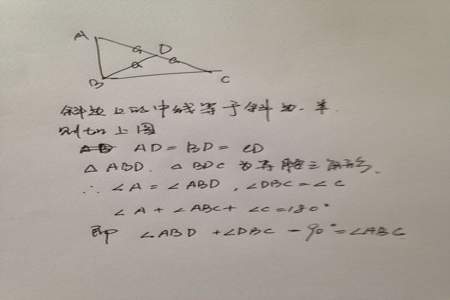 A
D
a
a
a
B
C
斜边上的中线等于斜边一半.
则如上图
AD=BD=CD
△ABD.△BDC为等腰三角形.
∴∠A=∠ABD,∠DBC=∠C
∠A+∠ABC+∠C=180°
即∠ABD+∠DBC=90°=∠ABC